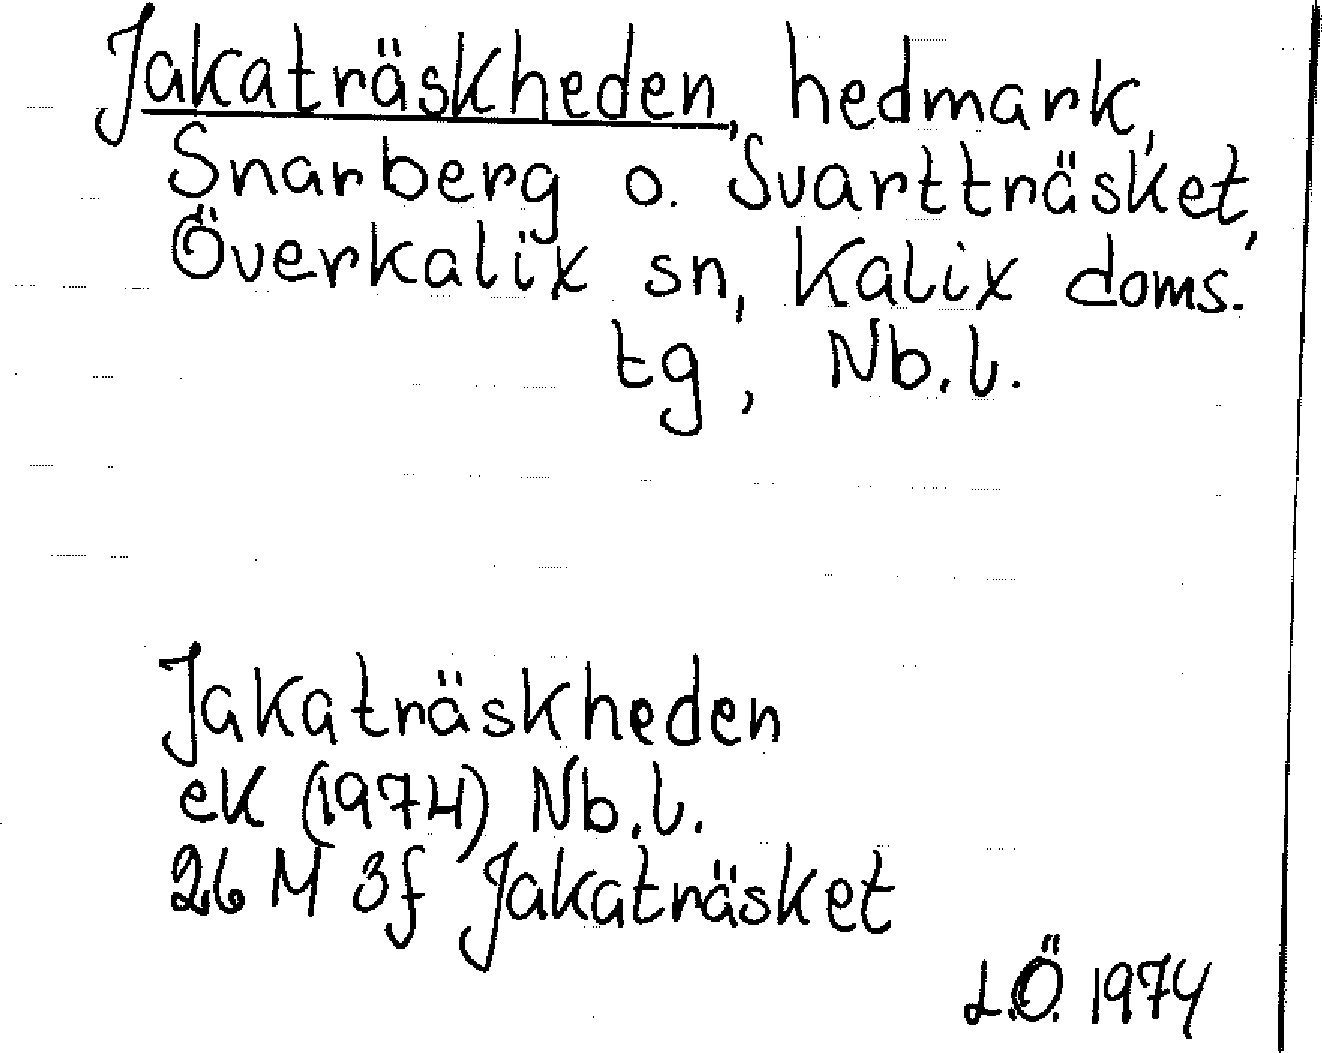 Jakaträskheden, hedmark,
Snarberg o. Svartträsket,
Överkalix sn, Kalix doms.
tg, Nb.l.
Jakaträskheden
ek (1974) Nb.l.
26 M 3f Jakaträsket
L.Ö. 1974